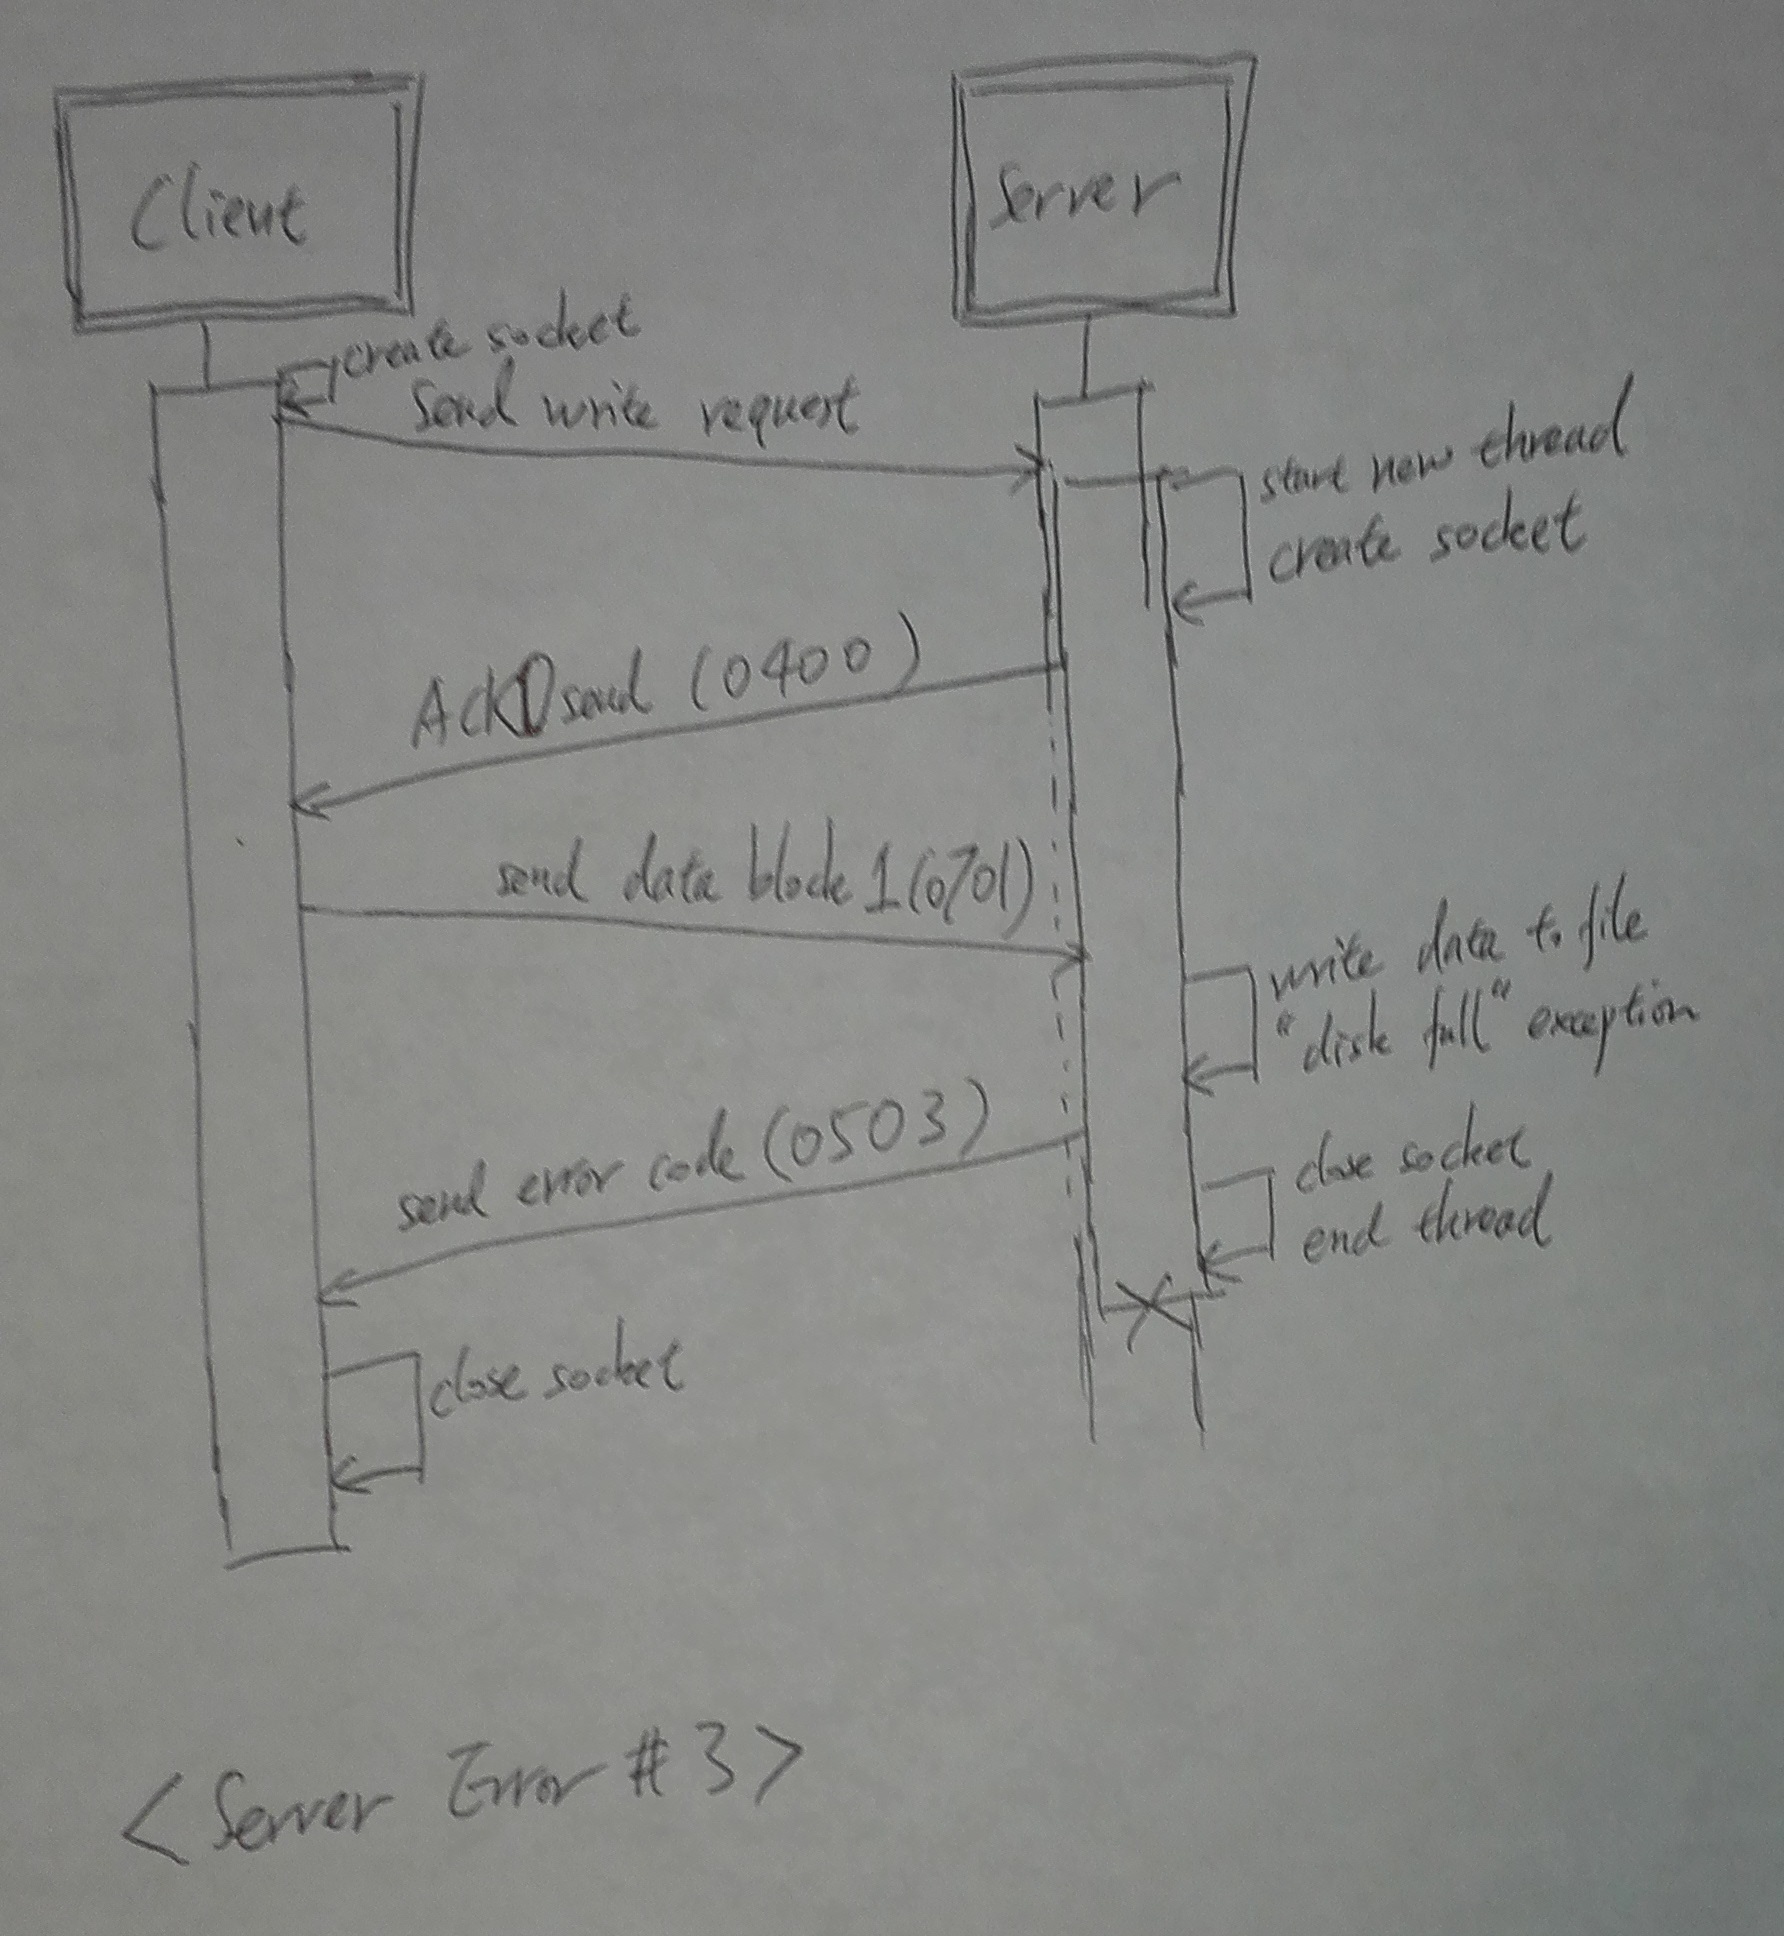 Client
Server
create socket
send write request
start new thread
create socket
ACK0 send (0400)
send data block 1 (0701)
write data to file
"disk full" exception
send error code (0503)
close socket
end thread
close socket
<Server Error #3>